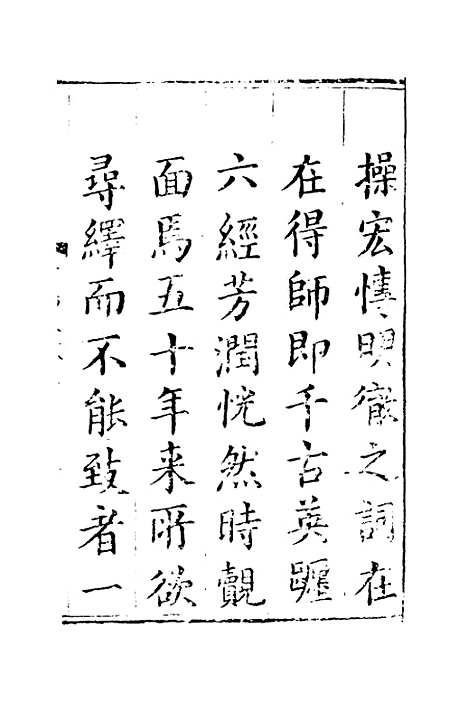 操宏情明徹之詞在
在得師即千古英躔
六經芳潤恍然時覿
面焉五十年来所欲
尋繹而不能致者一